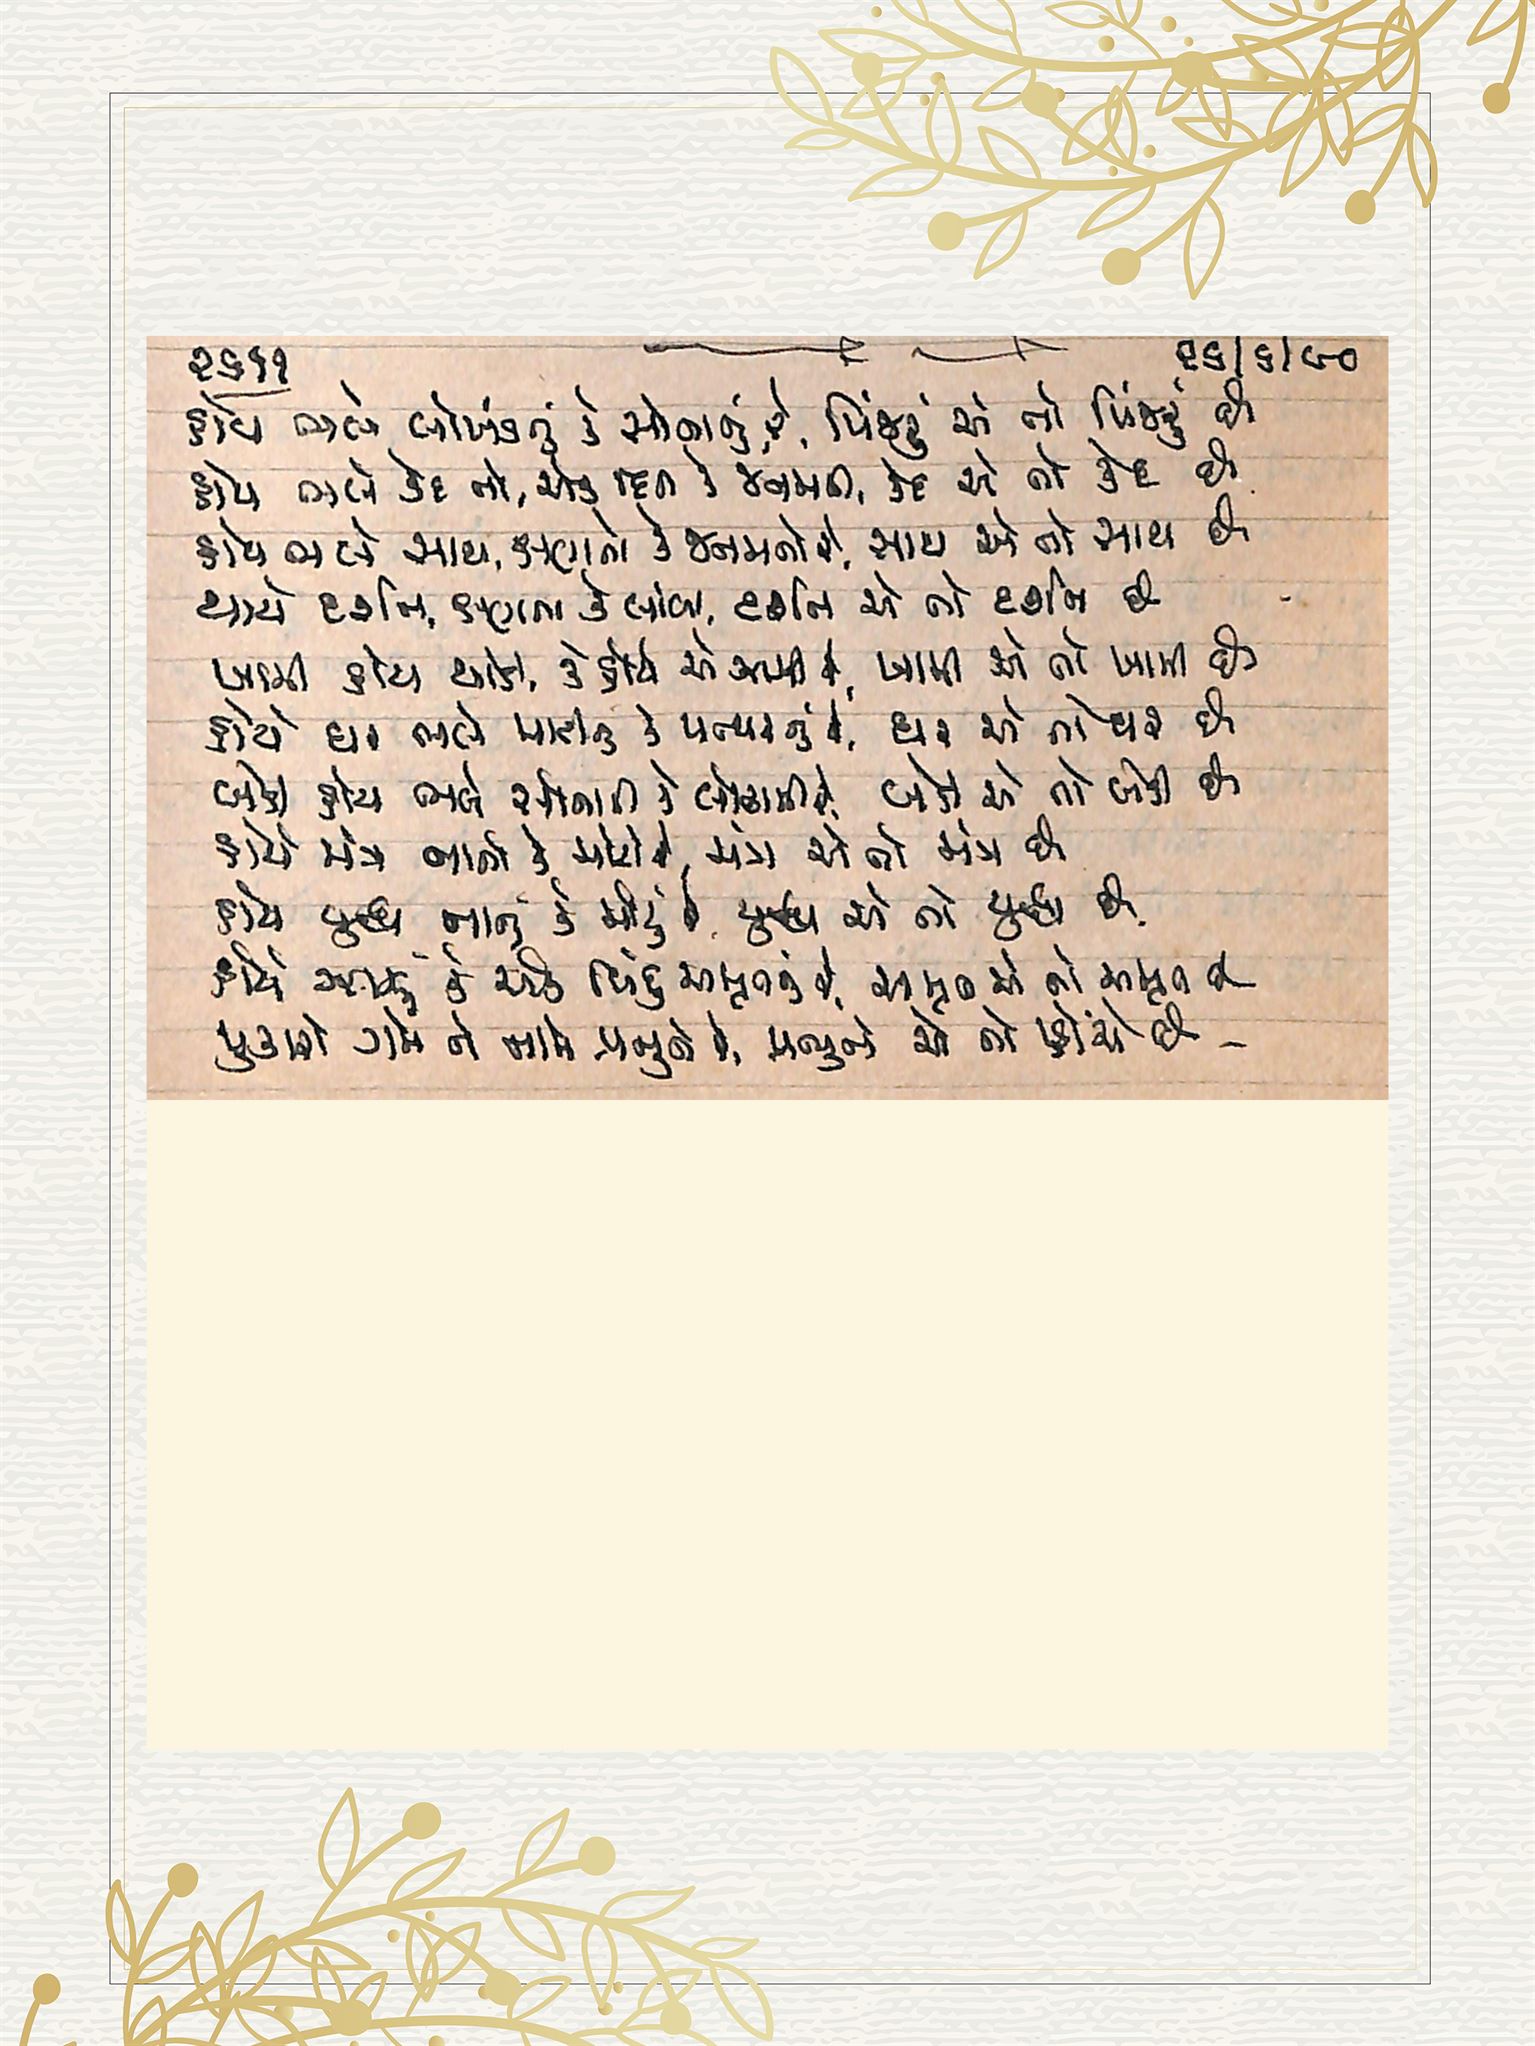 ૨૬૧૧ ૨૬/૬/૯૦
હોય ભલે લોખંડનું કે સોનાનું રે, પિંજરું એ તો પિંજરું છે
હોય ભલે કેદ તો, એક દિન કે જનમની, કેદ એ તો કેદ છે
હોય ભલે સાથ, ક્ષણનો કે જનમનો રે, સાથ એ તો સાથ છે
થાયે દર્શન, ક્ષણના કે લાંબા, દર્શન એ તો દર્શન છે
ખામી હોય થોડી, કે હોયે એ રે, ખામી એ તો ખામી છે
હોયે ઘર ભલે માટીનું કે પથ્થરનું રે, ઘર એ તો ઘર છે
બેડી હોય ભલે સોનાની કે લોઢાની રે, બેડી એ તો બેડી છે
હોયે મંત્ર નાનો કે મોટો રે, મંત્ર એ તો મંત્ર છે
હોય યુદ્ધ નાનું કે મોટું રે યુદ્ધ એ તો યુદ્ધ છે.
હોયે કે એક બિંદુ અમૃતનું રે, અમૃત એ તો અમૃત છે
પુકારો ગમે તે નામે પ્રભુને રે, પ્રભુ તો એ તો છે –